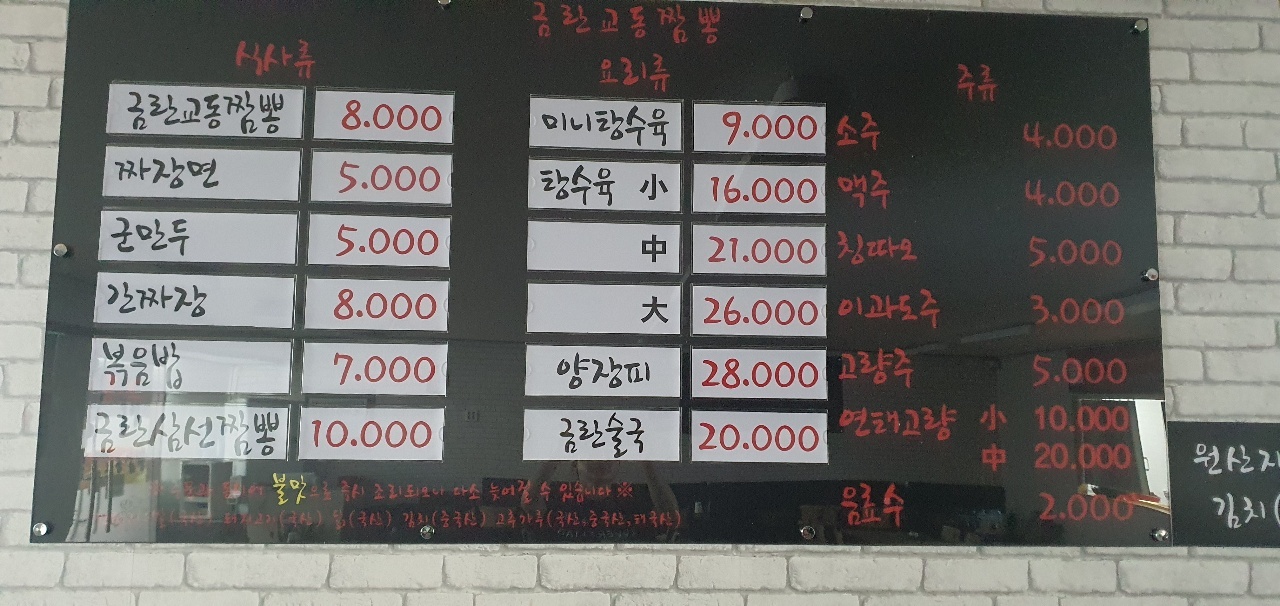 금란교동짬뽕
식사류
금란교동짬뽕 8.000
짜장면 5.000
군만두 5.000
간짜장 8.000
볶음밥 7.000
금란삼선짬뽕 10.000
요리류
미니탕수육 9.000
탕수육 小 16.000
中 21.000
大 26.000
양장피 28.000
금란술국 20.000
주류
소주 4.000
맥주 4.000
칭따오 5.000
이과도주 3.000
고량주 5.000
연태고량 小 10.000
中 20.000
음료수 2.000
불맛으로 즉시 조리되오니 다소 늦어질 수 있습니다 ※
돼지고기(국산) 쌀(국산) 김치(중국산) 고추가루(국산,중국산,태국산)
원산지
김치(